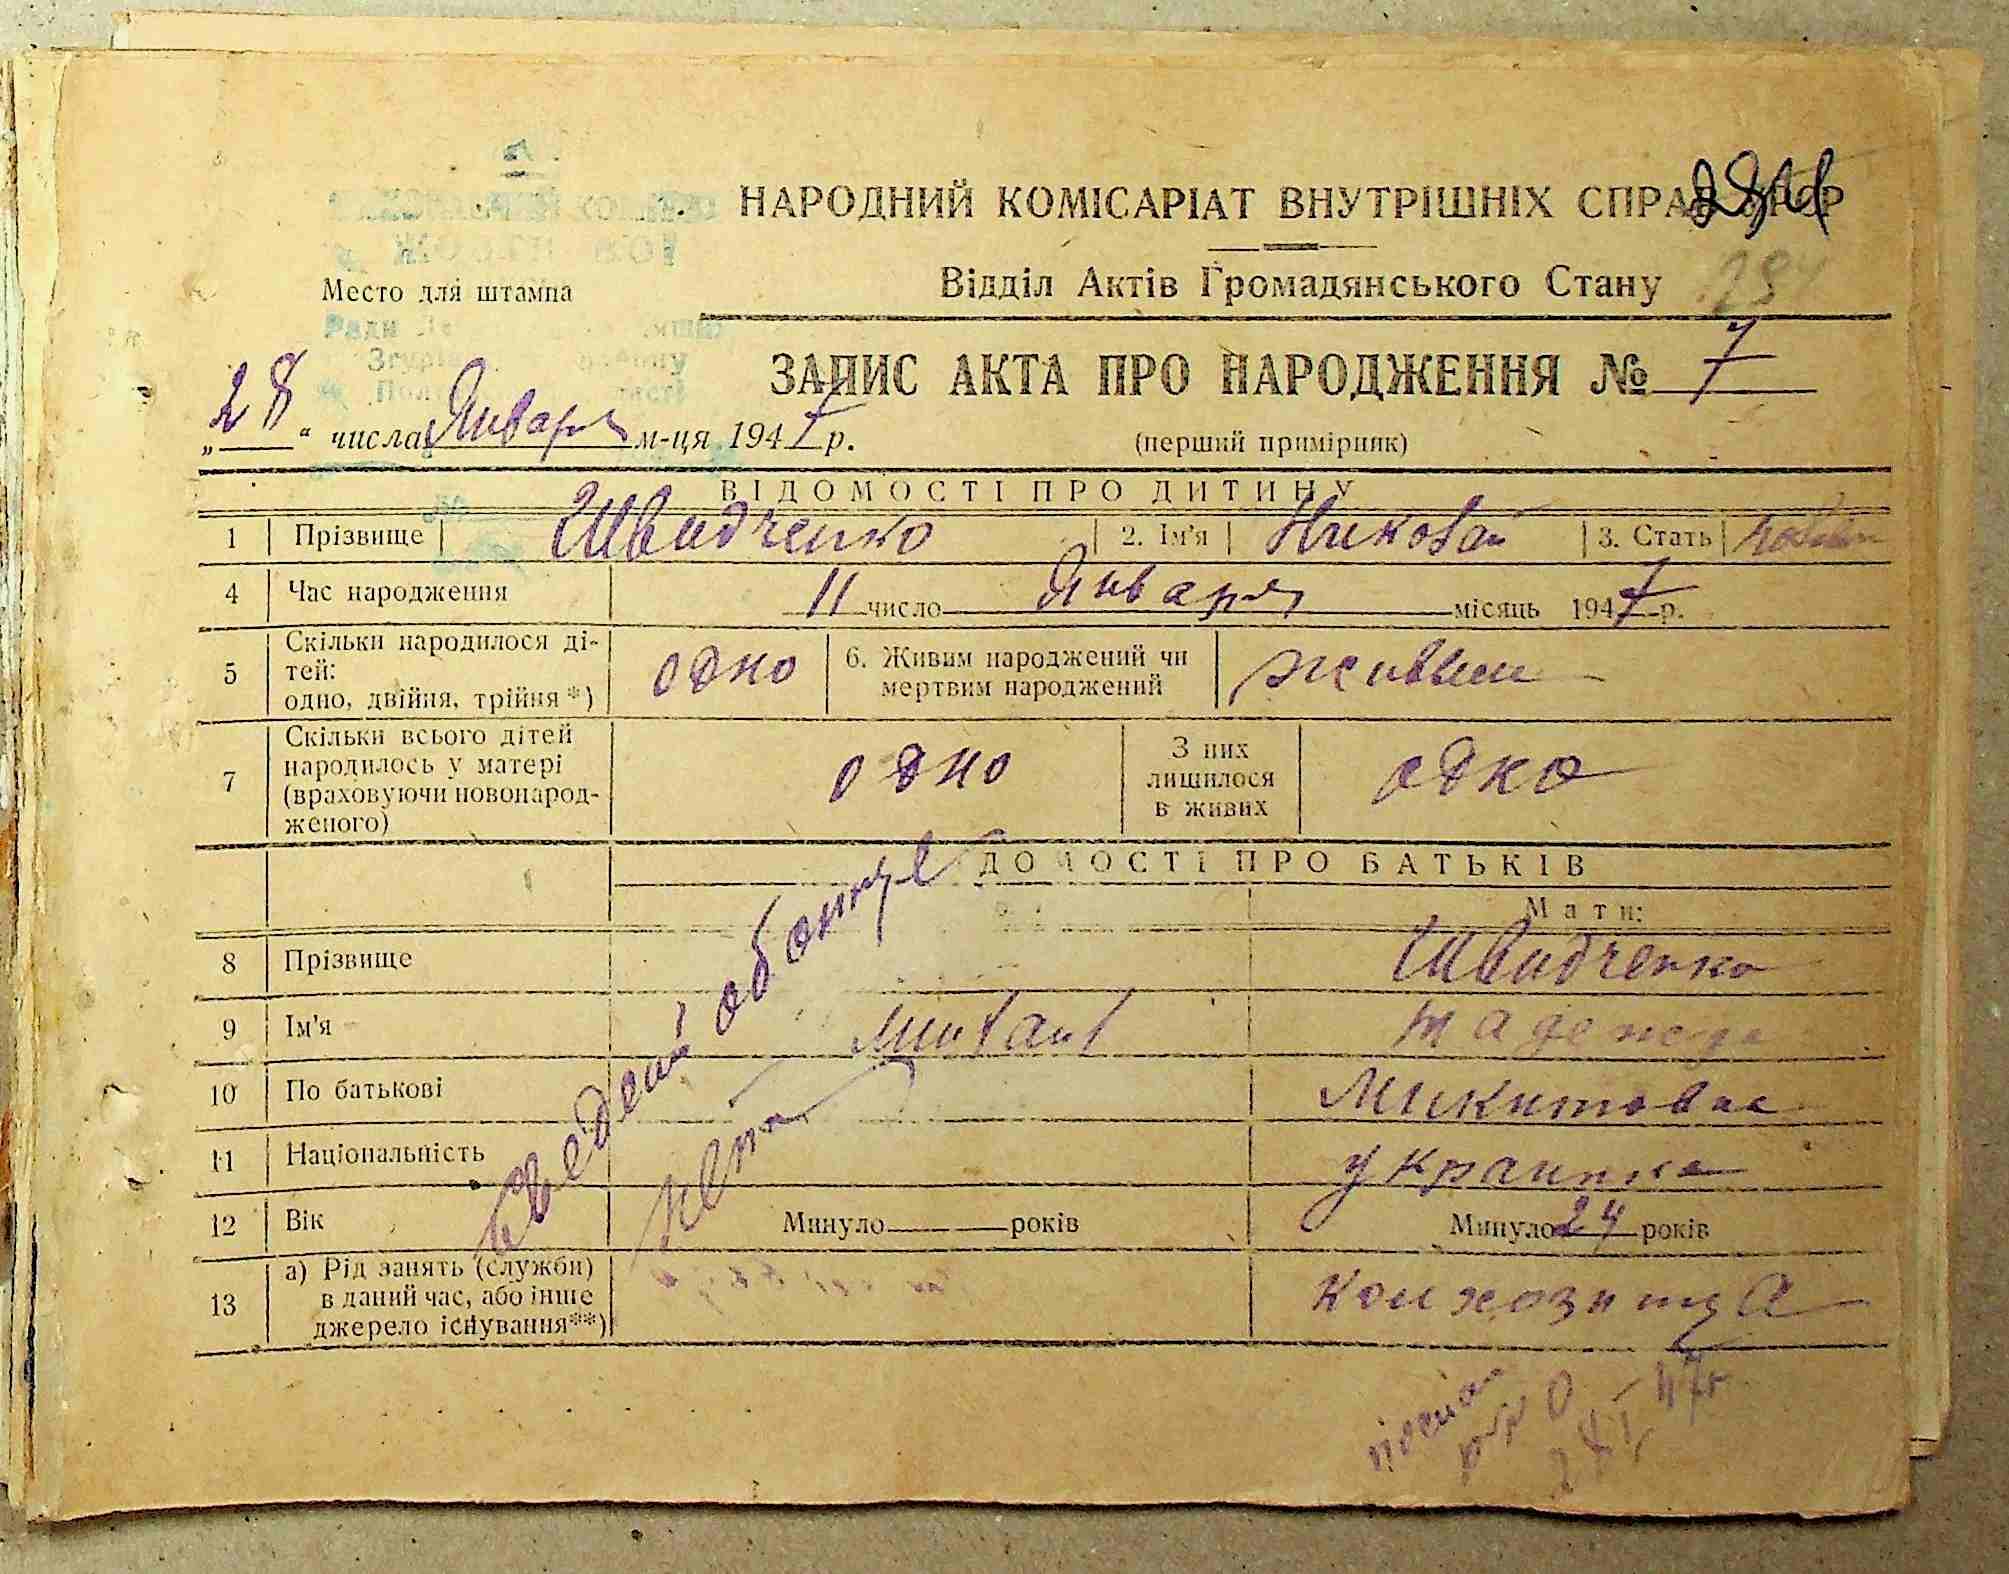 НАРОДНИЙ КОМІСАРІАТ ВНУТРІШНІХ СПРАВ УРСР
Відділ Актів Громадянського Стану
Место для штампа
ЗАПИС АКТА ПРО НАРОДЖЕННЯ № 7
„28“ числа Января м-ця 1947 р.
(перший примірник)
ВІДОМОСТІ ПРО ДИТИНУ
1 Прізвище Швидченко 2. Ім'я Николай 3. Стать
4 Час народження 11 число Января місяць 1947 р.
5 Скільки народилося ді-
тей:
одно, двійня, трійня *) одно 6. Живим народжений чи
мертвим народжений живым
7 Скільки всього дітей
народилось у матері
(враховуючи новонарод-
женого) одно З них
лишилося
в живих одно
ДОМОСТІ ПРО БАТЬКІВ
Мати:
8 Прізвище Швидченко
9 Ім'я Надежда
10 По батькові Микитовна
11 Національність украинка
12 Вік Минуло років Минуло 24 років
13 а) Рід занять (служби)
в даний час, або інше
джерело існування**) колхозница
Сведений об отце
нет